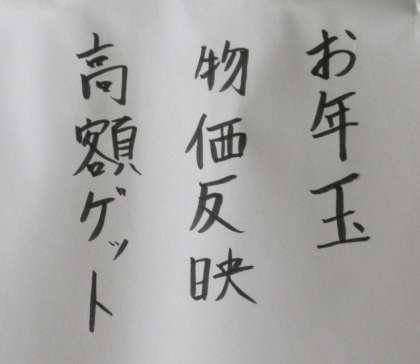 お年玉
物価反映
高額ゲット